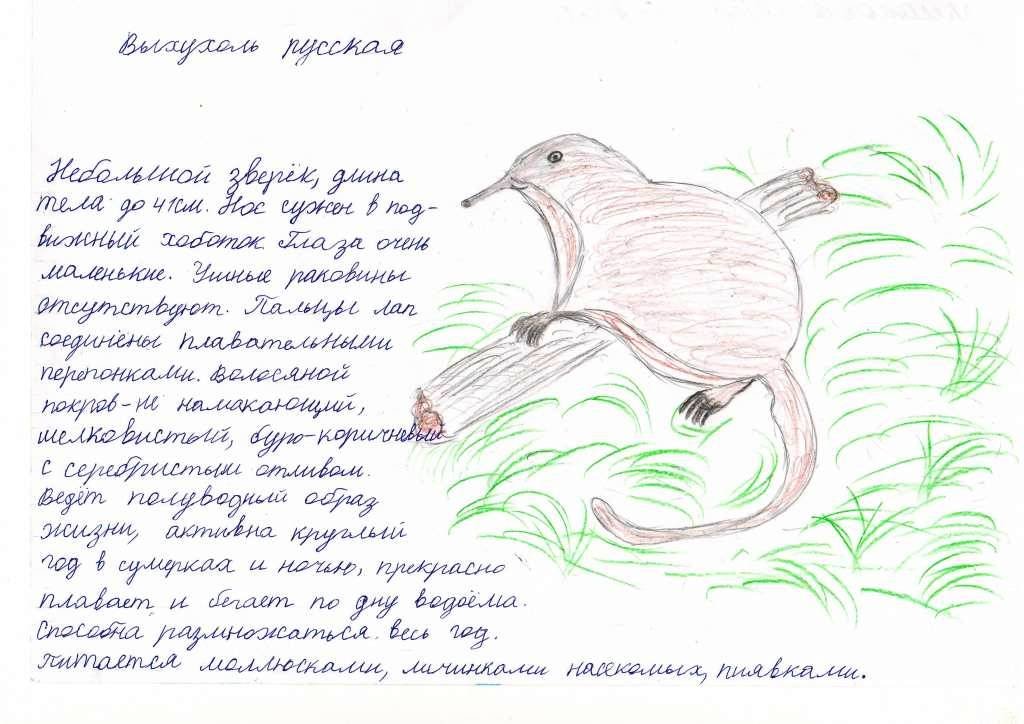 Выхухоль русская
Небольшой зверёк, длина
тела до 41см. Нос сужен в под-
вижный хоботок. Глаза очень
маленькие. Ушные раковины
отсутствуют. Пальцы лап
соединёны плавательными
перепонками. Волосяной
покров-не намакающий,
шелковистый, буро-коричневый
с серебристым отливом.
Ведёт полуводный образ
жизни, активна круглый
год в сумерках и ночью, прекрасно
плавает и бегает по дну водоёма.
Способна размножаться весь год.
Питается моллюсками, личинками насекомых, пиявками.